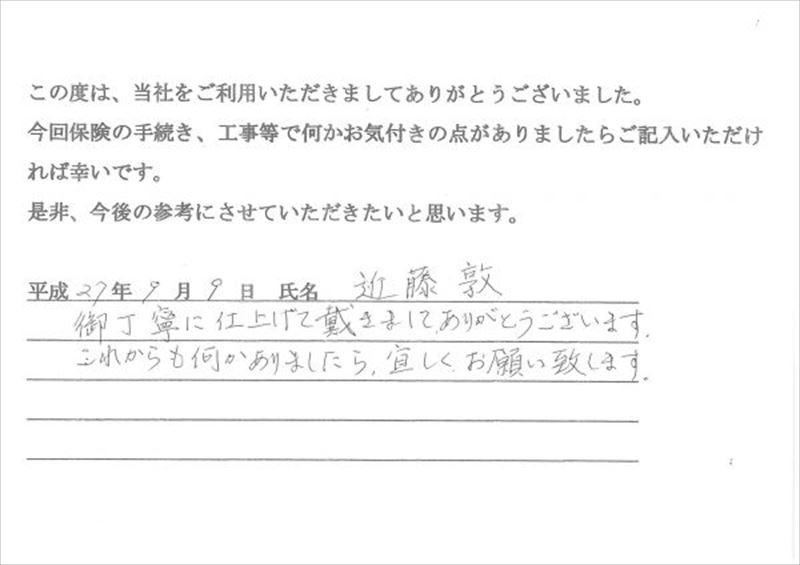 この度は、当社をご利用いただきましてありがとうございました。
今回保険の手続き、工事等で何かお気付きの点がありましたらご記入いただけ
れば幸いです。
是非、今後の参考にさせていただきたいと思います。
平成27年9月9日 氏名 近藤敦
御丁寧に仕上げて戴きましてありがとうございます.
これからも何かありましたら,宜しくお願い致します。